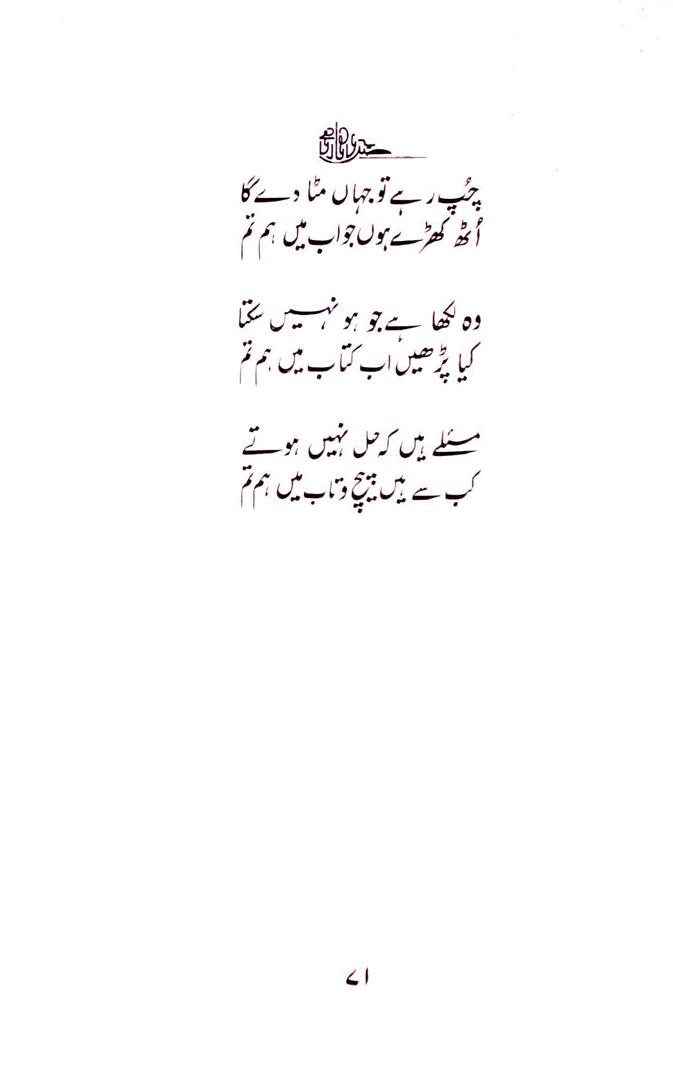 چُپ رہے تو جہاں مٹا دے گا
اُٹھ کھڑے ہوں جواب میں ہم تم
وہ لکھا ہے جو ہو نہیں سکتا
کیا پڑھیں اب کتاب میں ہم تم
مسئلے ہیں کہ حل نہیں ہوتے
کب سے ہیں پیچ و تاب میں ہم تم
۷۱